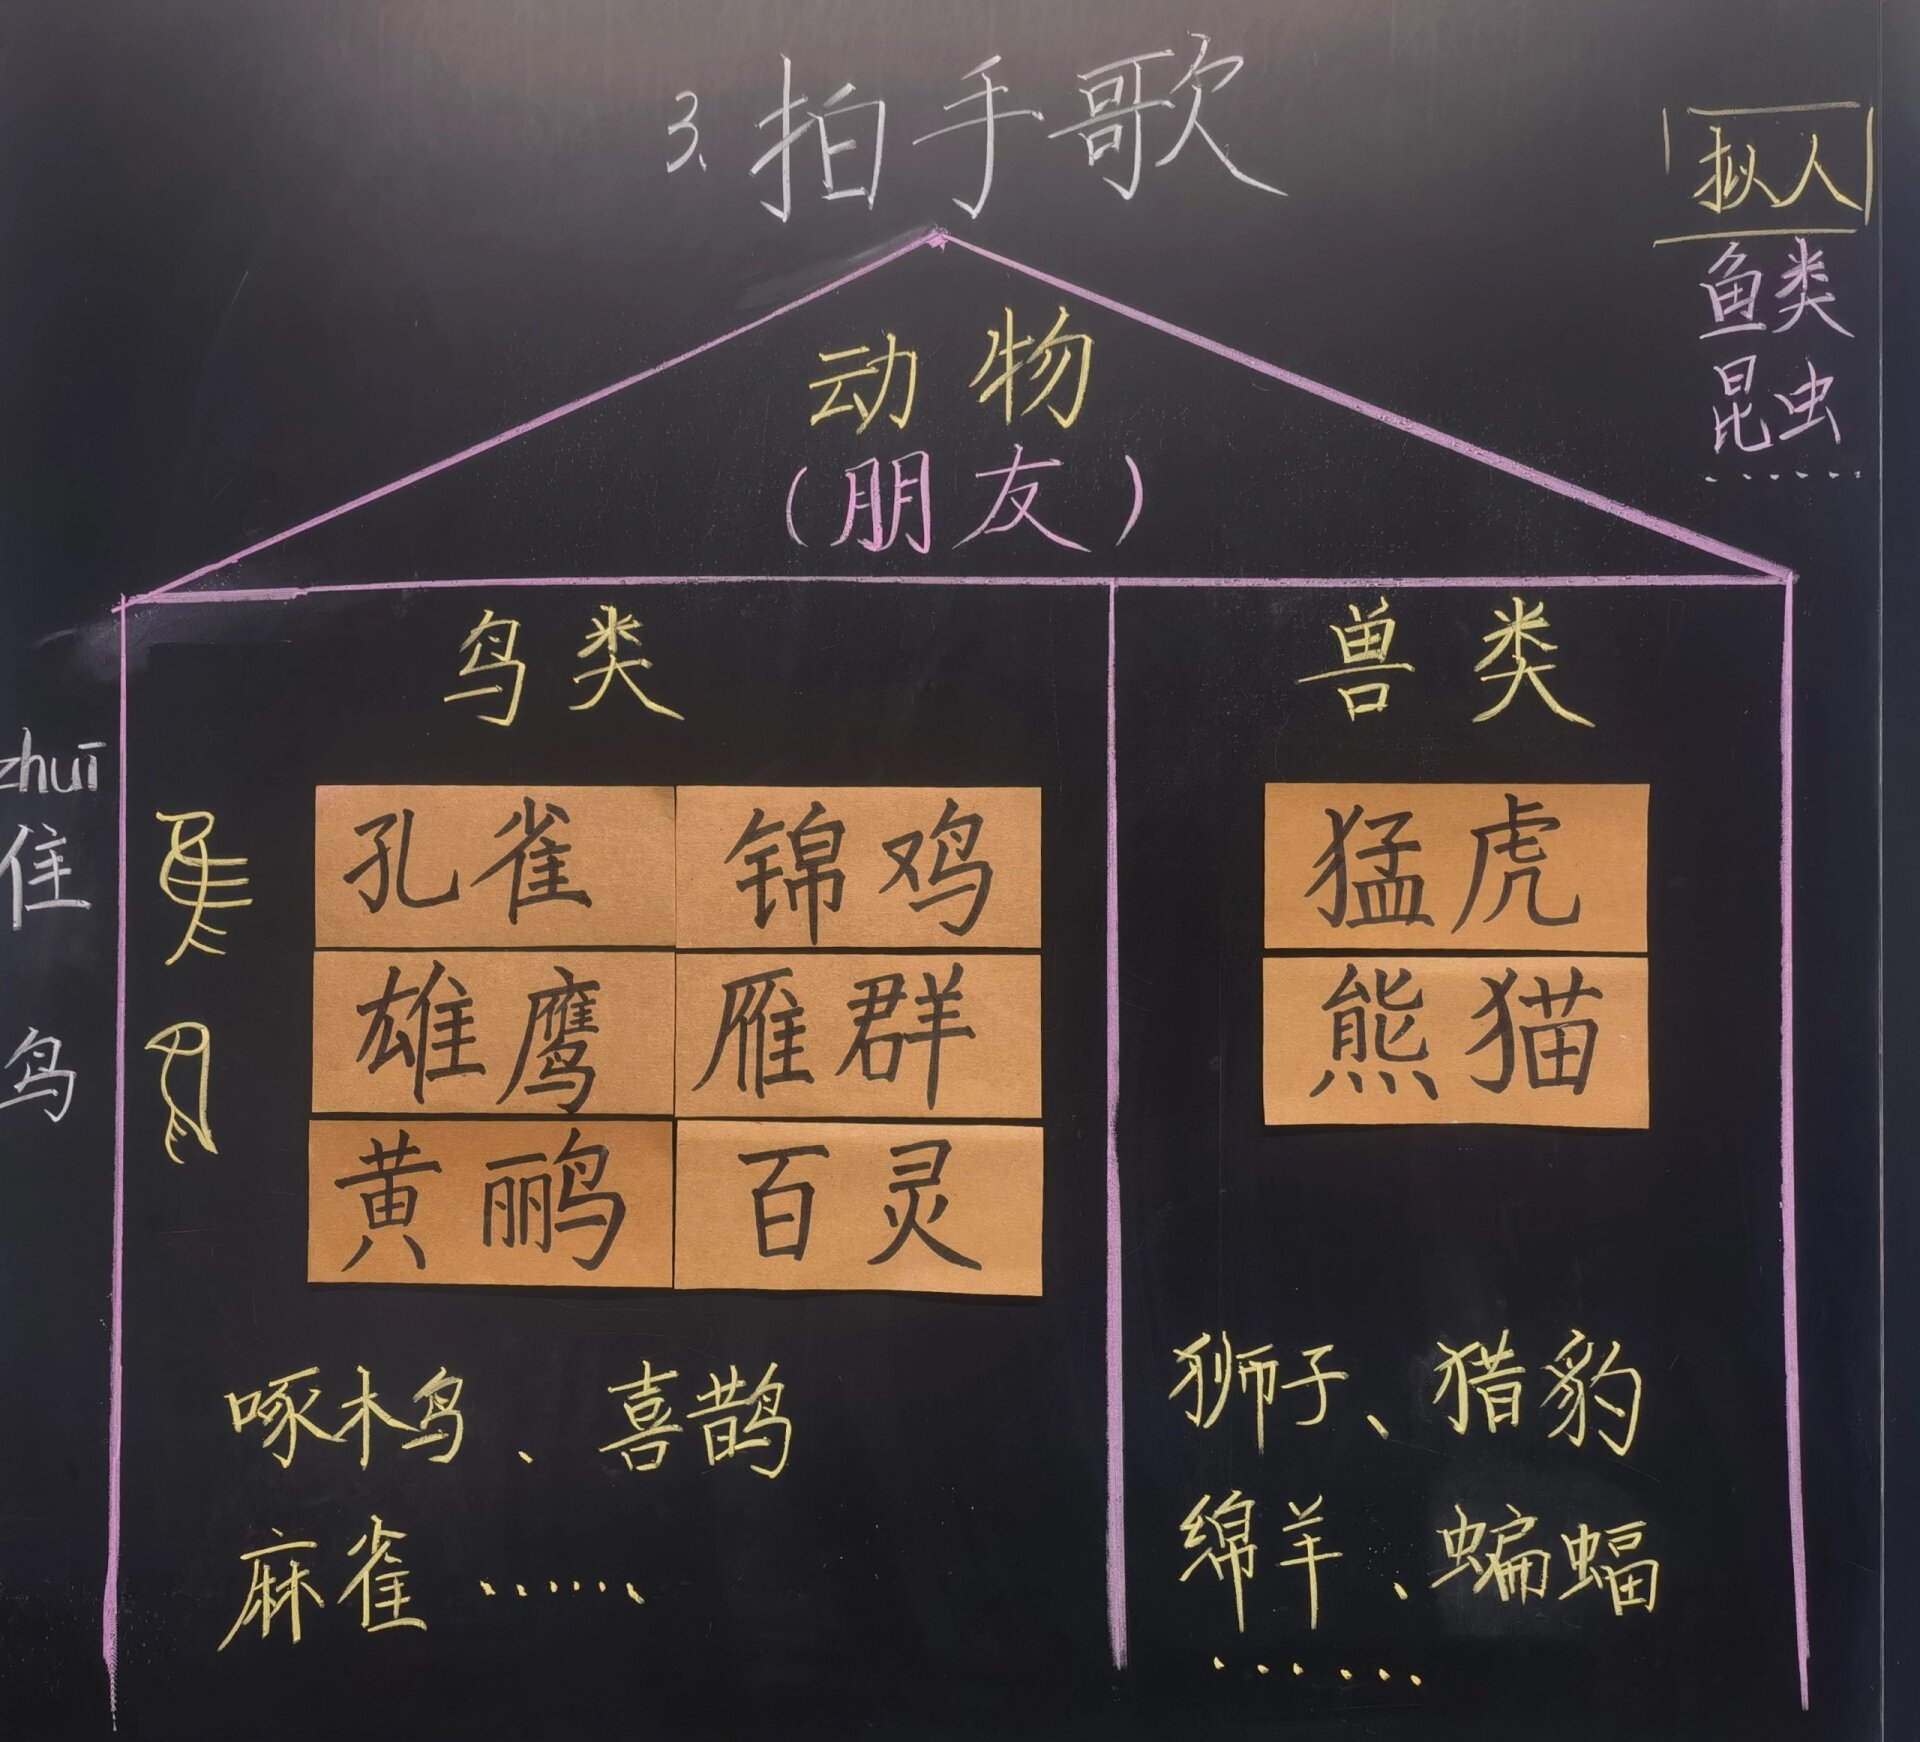 3、拍手歌
拟人
鱼类
昆虫
……
动物
(朋友)
鸟类
兽类
zhuī
隹
鸟
孔雀 锦鸡
雄鹰 雁群
黄鹂 百灵
猛虎
熊猫
啄木鸟、喜鹊
麻雀……
狮子、猎豹
绵羊、蝙蝠
……